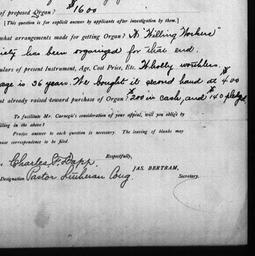 of proposed Organ? $1600
[This question is for explicit answer by applicants after investigation by them.]
what arrangements made for getting Organ? A "Willing Workers"
iety has been organized for that end.
ulars of present Instrument, Age, Cost Price, Etc. Wholly worthless.
age is 36 years. We bought it second hand at $400
nt already raised toward purchase of Organ? $200 in cash, and $140 pledged
To facilitate Mr. Carnegie's consideration of your appeal, will you oblige by
filling in the above?
Precise answer to each question is necessary. The leaving of blanks may
correspondence to be
Respectfully,
Charles F. Dapp
JAS. BERTRAM,
Designation Pastor Lutheran Cong.
Secretary.